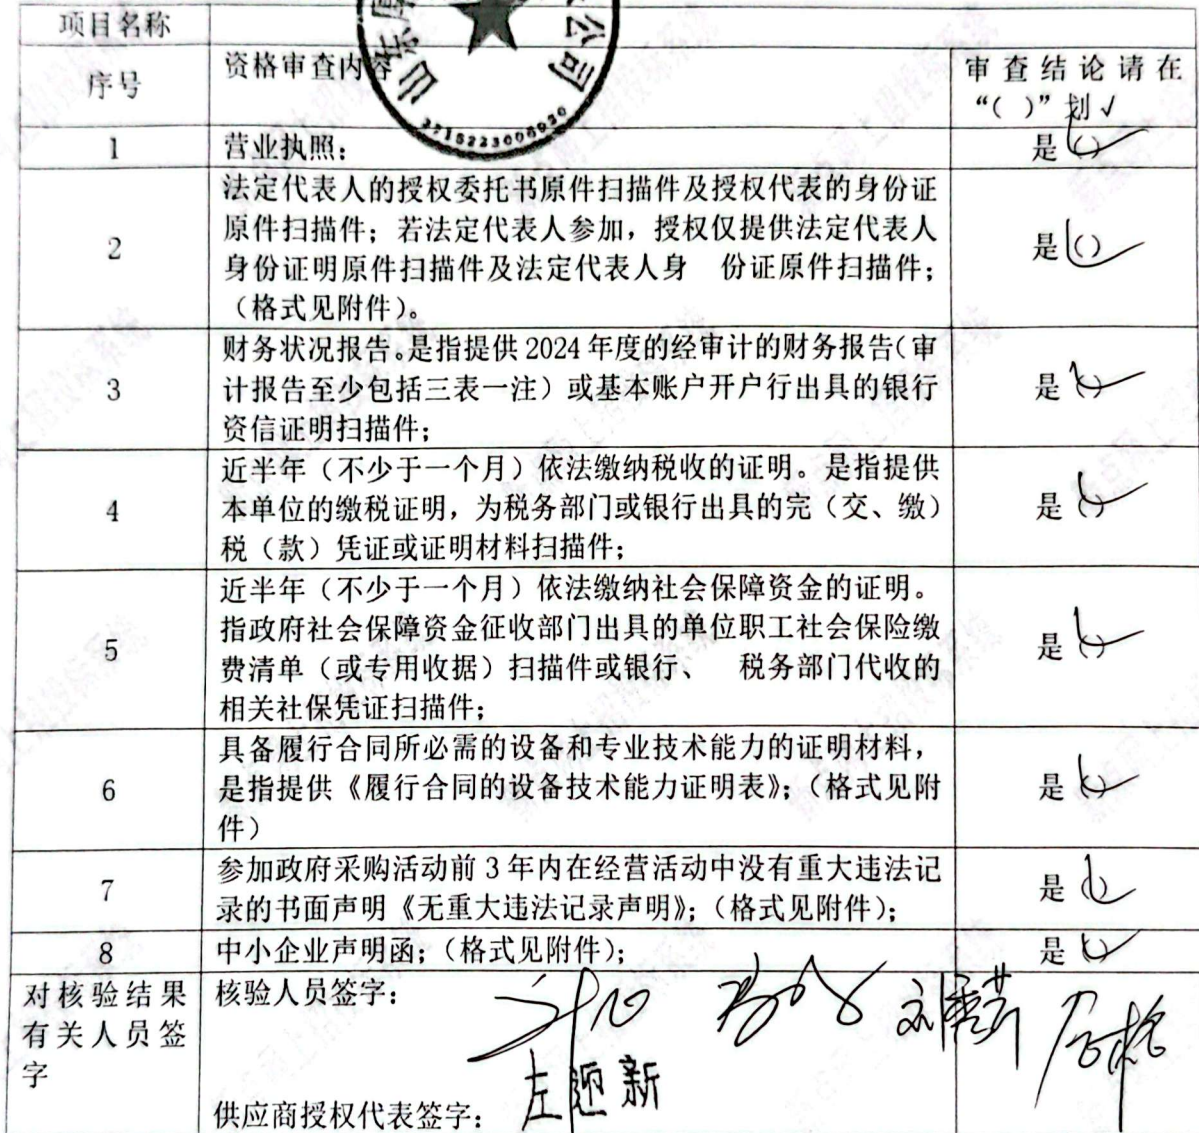 项目名称
序号
资格审查内容
审查结论请在
“（ ）”划√
山东
公司
1
营业执照；
是（）
法定代表人的授权委托书原件扫描件及授权代表的身份证
原件扫描件；若法定代表人参加，授权仅提供法定代表人
身份证明原件扫描件及法定代表人身 份证原件扫描件；
（格式见附件）。
2
是（）
财务状况报告。是指提供 2024 年度的经审计的财务报告（审
计报告至少包括三表一注）或基本账户开户行出具的银行
资信证明扫描件；
3
是（）
近半年（不少于一个月）依法缴纳税收的证明。是指提供
本单位的缴税证明，为税务部门或银行出具的完（交、缴）
税（款）凭证或证明材料扫描件；
4
是（）
近半年（不少于一个月）依法缴纳社会保障资金的证明。
指政府社会保障资金征收部门出具的单位职工社会保险缴
费清单（或专用收据）扫描件或银行、 税务部门代收的
相关社保凭证扫描件；
5
是（）
具备履行合同所必需的设备和专业技术能力的证明材料，
是指提供《履行合同的设备技术能力证明表》；（格式见附
件）
6
是（）
参加政府采购活动前 3 年内在经营活动中没有重大违法记
录的书面声明《无重大违法记录声明》；（格式见附件）；
7
是（）
8
中小企业声明函；（格式见附件）；
是（）
对核验结果
有关人员签
字
核验人员签字：
供应商授权代表签字：
左迎新